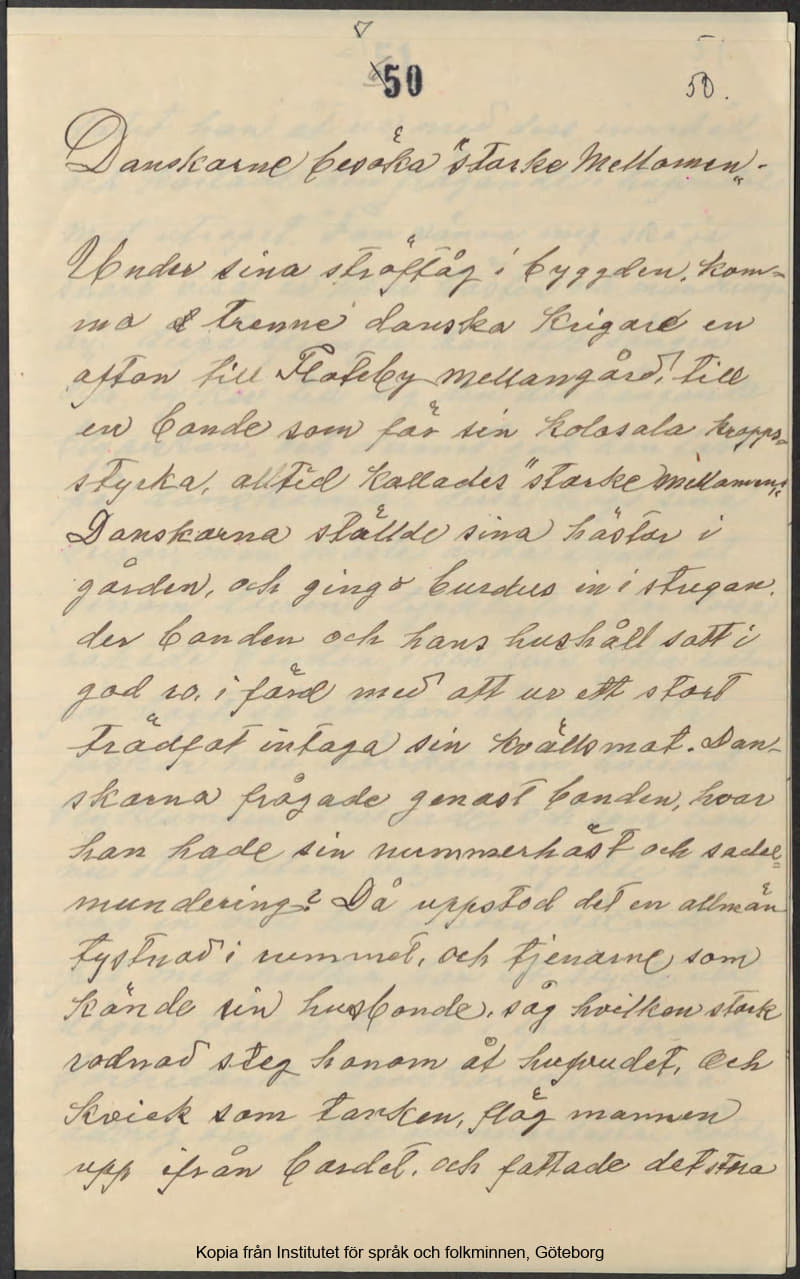 50
50.
Danskarne besöka "starke Mellomen".
Under sina ströftåg i byggden, kom-
ma trenne danska krigare en
afton till Flateby mellangård, till
en bonde som för sin kolosala kropps-
styrka, alltid kallades "starke Mellomen".
Danskarna ställde sina hästar i
gården, och gingo burdus in i stugan,
der bonden och hans hushåll satt i
god ro, i färd med att ur ett stort
trädfat intaga sin kvällsmat. Dan-
skarna frågade genast bonden, hvar
han hade sin nummerhäst och sadel-
mundering? Då uppstod det en allmän
tystnad i rummet, och tjenarne som
kände sin husbonde, såg hvilken stark
rodnad steg honom åt hufvudet, och
kvick som tanken, flög mannen
upp ifrån bordet, och fattade det stora
Kopia från Institutet för språk och folkminnen, Göteborg